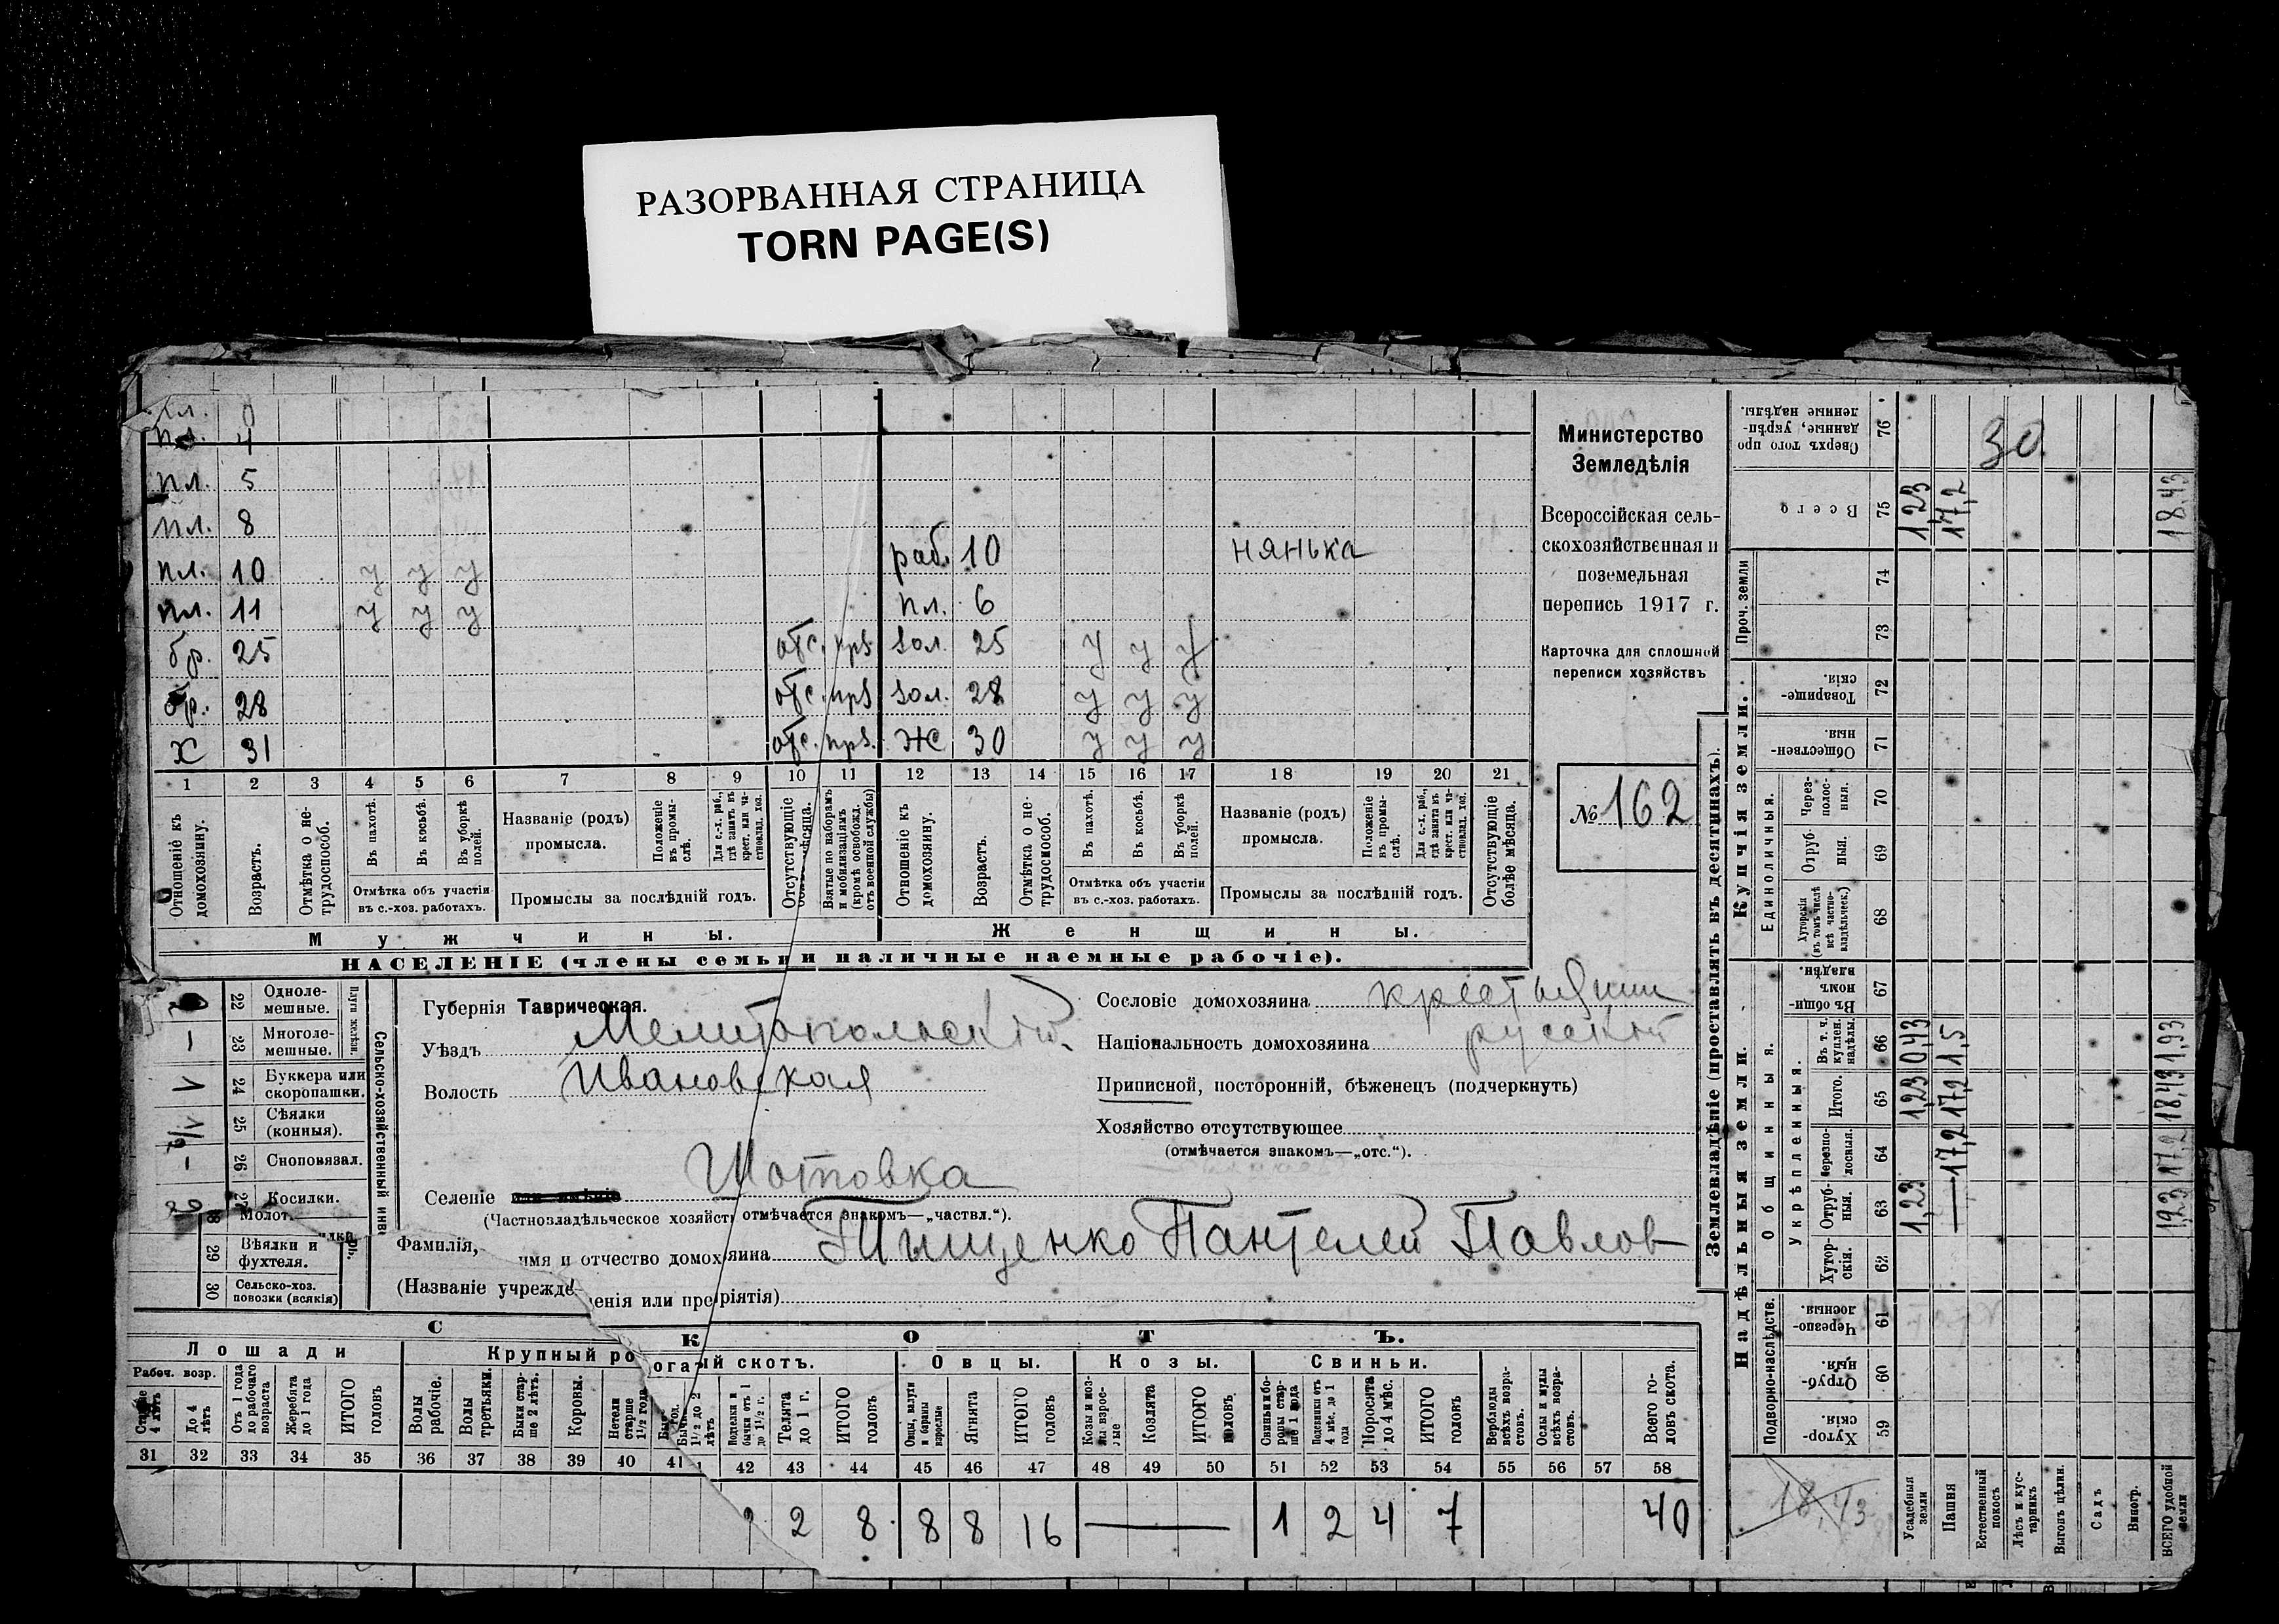 РАЗОРВАННАЯ СТРАНИЦА
TORN PAGE(S)
пл. 4
пл. 5
пл. 8
пл. 10 у у у
раб. 10 нянька
пл. 11 у у у
пл. 6
бр. 25 отс. прз зол. 25 у у у
бр. 28 отс. прз зол. 28 у у у
х 31 отс. прз. ж 30 у у у
1 2 3 4 5 6 7 8 9 10 11 12 13 14 15 16 17 18 19 20 21
Отношеніе къ домохозяину.
Возрастъ.
Отмѣтка о не-трудоспособ.
Въ пахотѣ.
Въ косьбѣ.
Въ уборкѣ полей.
Отмѣтка объ участіи
въ с.-хоз. работахъ.
Названіе (родъ)
промысла.
Положеніе въ промы-слѣ.
Для с.-х. раб., гдѣ занятъ въ крест. или ча-стновлад. хоз.
Промыслы за послѣдній годъ.
Отсутствующіе
Взятые по наборамъ и мобилизаціямъ (кромѣ освобожд. отъ военной службы)
Отношеніе къ домохозяину.
Возрастъ.
Отмѣтка о не-трудоспособ.
Въ пахотѣ.
Въ косьбѣ.
Въ уборкѣ полей.
Отмѣтка объ участіи
въ с.-хоз. работахъ.
Названіе (родъ)
промысла.
Положеніе въ промы-слѣ.
Для с.-х. раб., гдѣ занята въ крест. или ча-стновлад. хоз.
Промыслы за послѣдній годъ.
Отсутствующіе болѣе мѣсяца.
Мужчины.
Женщины.
НАСЕЛЕНІЕ (члены семьи и наличные наемные рабочіе).
Министерство
Земледѣлія
Всероссійская сель-
скохозяйственная и
поземельная
перепись 1917 г.
Карточка для сплошной
переписи хозяйствъ
№ 162
Сельско-хозяйственный инв
Плуги желѣзн.
22 Одноле-
мешные.
— 23 Многоле-
мешные.
V 24 Буккера или
скоропашки.
25 Сѣялки
(конныя).
— 26 Сноповязал.
27 Косилки.
Молот
29 Вѣялки и
фухтеля.
30 Сельско-хоз.
повозки (всякія)
Губернія Таврическая.
Уѣздъ Мелитопольскій.
Волость Ивановская
Селеніе или имѣніе Шотовка
(Частновладѣльческое хозяйст отмѣчается знакомъ—„частвл.“).
Фамилія, имя и отчество домохозяина Тищенко Пантелей Павлов
(Названіе учрежденія или предпріятія)
Сословіе домохозяина крестьянин
Національность домохозяина русскій
Приписной, посторонній, бѣженецъ (подчеркнуть)
Хозяйство отсутствующее
(отмѣчается знакомъ—„отс.“).
СКОТЪ.
Лошади
Крупный рогатый скотъ.
Овцы.
Козы.
Свиньи.
Рабоч. возр.
Старше 4 лѣтъ
До 4 лѣтъ
Отъ 1 года до рабочаго возраста
Жеребята до 1 года
ИТОГО головъ
Волы рабочіе.
Волы третьяки.
Быки стар-ше 2 лѣтъ.
Коровы.
Нетели старше 1½ года
Бычки 1½ до 2 лѣтъ
Подтелки и бычки отъ 1 до 1½ г.
Телята до 1 г.
ИТОГО головъ
Овцы, валухи и бараны взрослые
Ягнята
ИТОГО головъ
Козлята
ИТОГО головъ
Свиньи и бо-ровы стар-ше 1 года
Подсвинки отъ 4 мѣс. до 1 года
Поросята до 4 мѣс.
ИТОГО головъ
Верблюды всѣхъ возра-стовъ.
Ослы и мулы всѣхъ возра-стовъ.
Всего го-ловъ скота.
31 32 33 34 35 36 37 38 39 40 41 42 43 44 45 46 47 48 49 50 51 52 53 54 55 56 57 58
2 8 8 8 16 — 1 2 4 7 40
Землевладѣніе (проставлять въ десятинахъ).
Надѣльныя земли.
Купчія земли.
Сверхъ того про
данные, укрѣп-
ленные надѣлы.
76 30
Всего 75 1,23 17,2 18,43
Проч. земли 74
73
Товарище-
скія. 72
Обществен-
ныя. 71
Единоличныя.
Через-
полос-
ныя. 70
Отруб-
ныя. 69
Хуторскія
(въ томъ числѣ
всѣ частно-
владѣльческ.) 68
Общинныя.
Въ общи-
номъ
владѣн. 67
Укрѣпленныя.
Въ т. ч.
куплен.
надѣлы. 66 0,43 1,5 1,93
Итого. 65 1,23 17,2 18,43
Черезпо-
лосныя. 64 17,2 17,2
Отруб-
ныя. 63 1,23 — 1,23
Хутор-
скія. 62
Подворно-наслѣдств.
Черезпо-
лосныя. 61
Отруб-
ныя. 60
Хутор-
скія. 59
18,43
Усадебныя земли
Пашня
Естественный покосъ
Лѣсъ и кус-тарникъ
Выгонъ цѣлин.
Садъ
Виногр.
ВСЕГО удобной земли